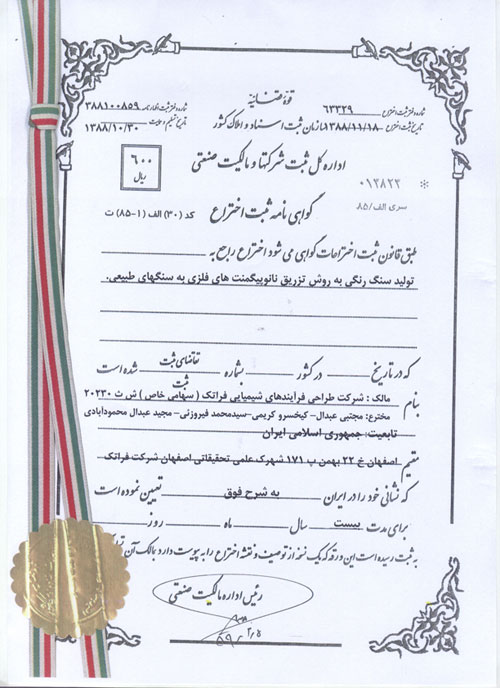 قوۀ قضائیه
شماره دفتر ثبت اختراع ۶۳۳۲۹ شماره دفتر ثبت اظهارنامه ۳۸۸۱۰۰۸۵۹
تاریخ ثبت اختراع ۱۳۸۸/۱۱/۱۸ سازمان ثبت اسناد و املاک کشور تاریخ تسلیم ۱۳۸۸/۱۰/۳۰
اداره کل ثبت شرکتها و مالکیت صنعتی
۶۰۰
ریال
* ۰۱۲۸۲۲
سری الف/۸۵
گواهی نامه ثبت اختراع
کد (۳۰) الف (۱-۸۵) ت
طبق قانون ثبت اختراعات گواهی می شود اختراع راجع به
تولید سنگ رنگی به روش تزریق نانوپیگمنت های فلزی به سنگهای طبیعی.
که در تاریخ در کشور بشماره تقاضای ثبت شده است
ثبت
بنام مالک : شرکت طراحی فرآیندهای شیمیایی فراتک ( سهامی خاص ) ش ث ۲۰۲۳۰
مخترع: مجتبی عبدال- کیخسرو کریمی-سیدمحمد فیروزنی- مجید عبدال محمودآبادی
تابعیت: جمهوری اسلامی ایران
مقیم اصفهان خ ۲۲ بهمن ب ۱۷۱ شهرک علمی تحقیقاتی اصفهان شرکت فراتک
که نشانی خود را در ایران به شرح فوق تعیین نموده است
برای مدت بیست سال ماه روز
به ثبت رسیده است این ورقه که یک نسخه از توصیف و نقشه اختراع را به پیوست دارد بمالک آن
رئیس اداره مالکیت صنعتی